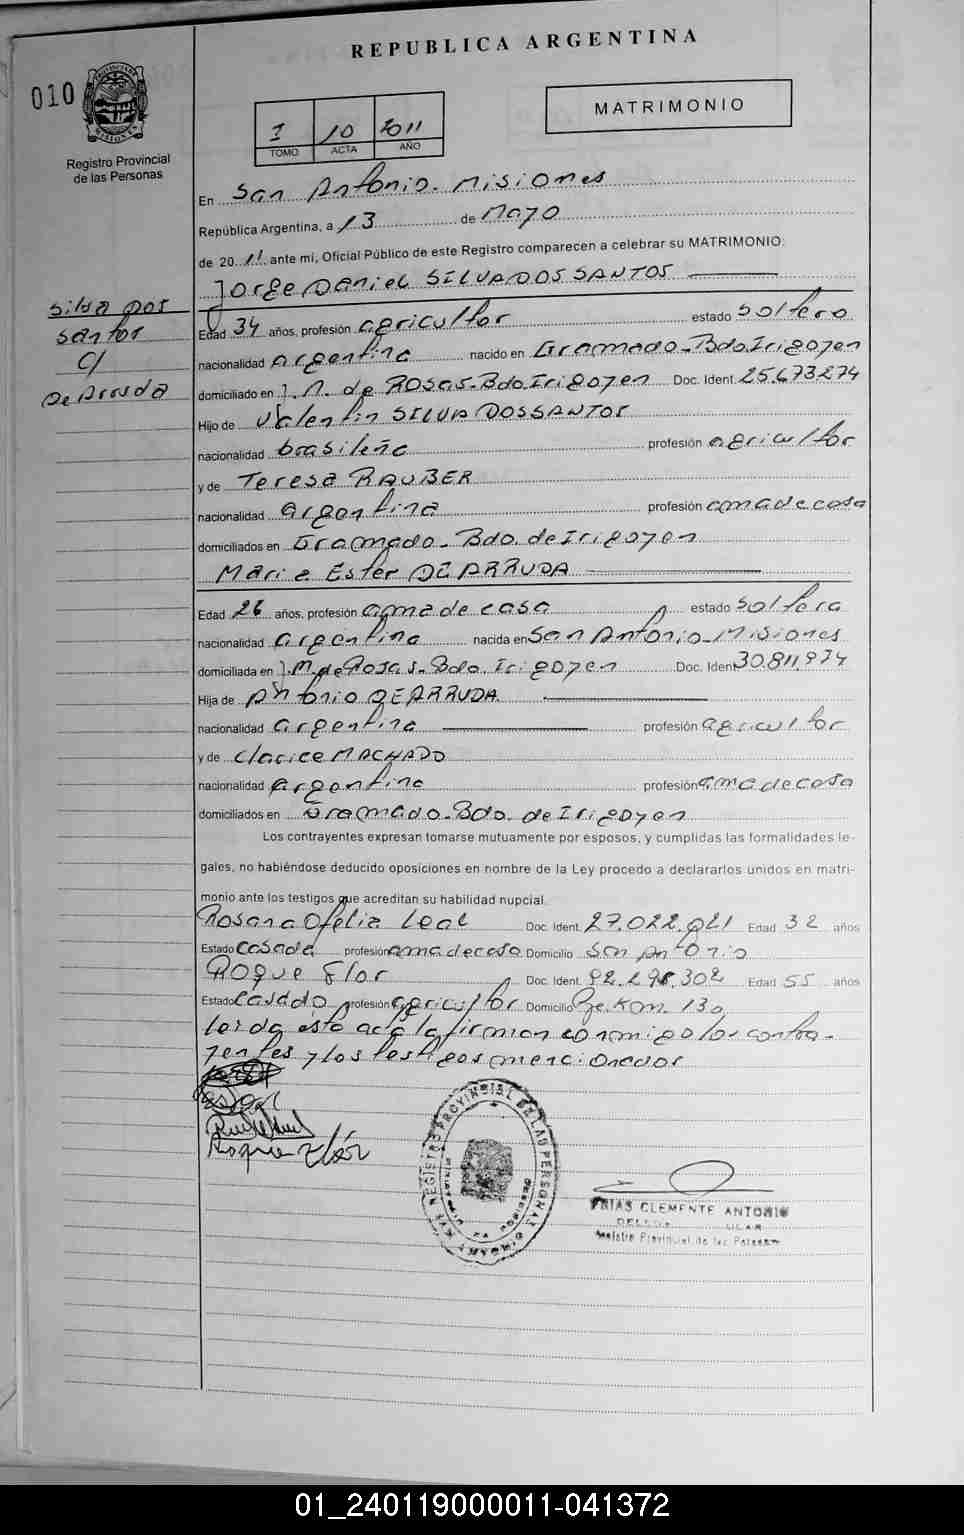 REPUBLICA ARGENTINA
010
Registro Provincial
de las Personas
I 10 2011
TOMO ACTA AÑO
MATRIMONIO
En San Antonio. Misiones
República Argentina, a 13 de Mayo
de 2011 ante mi, Oficial Público de este Registro comparecen a celebrar su MATRIMONIO:
Jorge Daniel SILVA DOS SANTOS
Silva Dos
Santos
C/
De Arruda
Edad 34 años, profesión agricultor estado Soltero
nacionalidad argentina nacido en Gramado-Bdo Irigoyen
domiciliado en J.M. de ROSAS-Bdo.Irigoyen Doc. Ident. 25.673274
Hijo de Valentin SILVA DOS SANTOS
nacionalidad brasileña profesión agricultor
y de Teresa RAUBER
nacionalidad argentina profesión ama de casa
domiciliados en Gramado-Bdo. de Irigoyen
Maria Ester DE ARRUDA
Edad 26 años, profesión ama de casa estado Soltera
nacionalidad argentina nacida en San Antonio-Misiones
domiciliada en J.M de Rosas-Bdo.Irigoyen Doc. Ident 30.811.974
Hija de Antonio DE ARRUDA
nacionalidad argentina profesión agricultor
y de Clarice MACHADO
nacionalidad argentina profesión ama de casa
domiciliados en Gramado-Bdo. de Irigoyen
Los contrayentes expresan tomarse mutuamente por esposos, y cumplidas las formalidades le-
gales, no habiéndose deducido oposiciones en nombre de la Ley procedo a declararlos unidos en matri-
monio ante los testigos que acreditan su habilidad nupcial.
Rosana Ofelia Leal Doc. Ident. 27.022.021 Edad 32 años
Estado Casada profesión ama de casa Domicilio San Antonio
Roque Flor Doc. Ident. 92.298.302 Edad 55 años
Estado Casado profesión agricultor Domicilio Pje. Km. 130
leida esta acta la firman conmigo los contra-
yentes y los testigos mencionados
Roque Flor
FRIAS CLEMENTE ANTONIO
Registro Provincial de las Personas
01_240119000011-041372